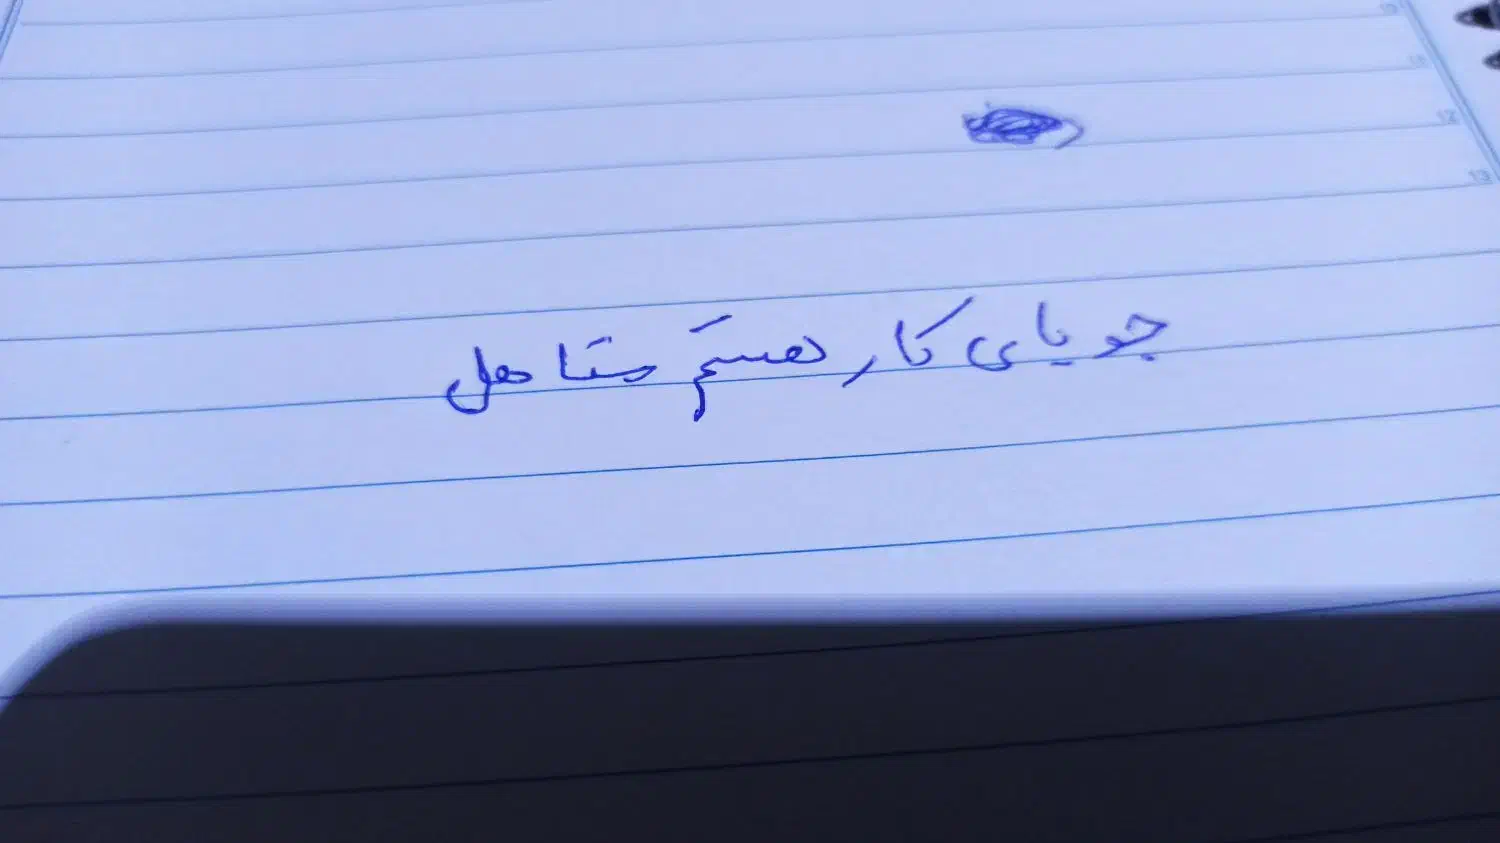 12
13
جویای کار هستم متاهل